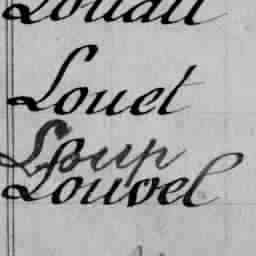 Louet
Loup
Louvel